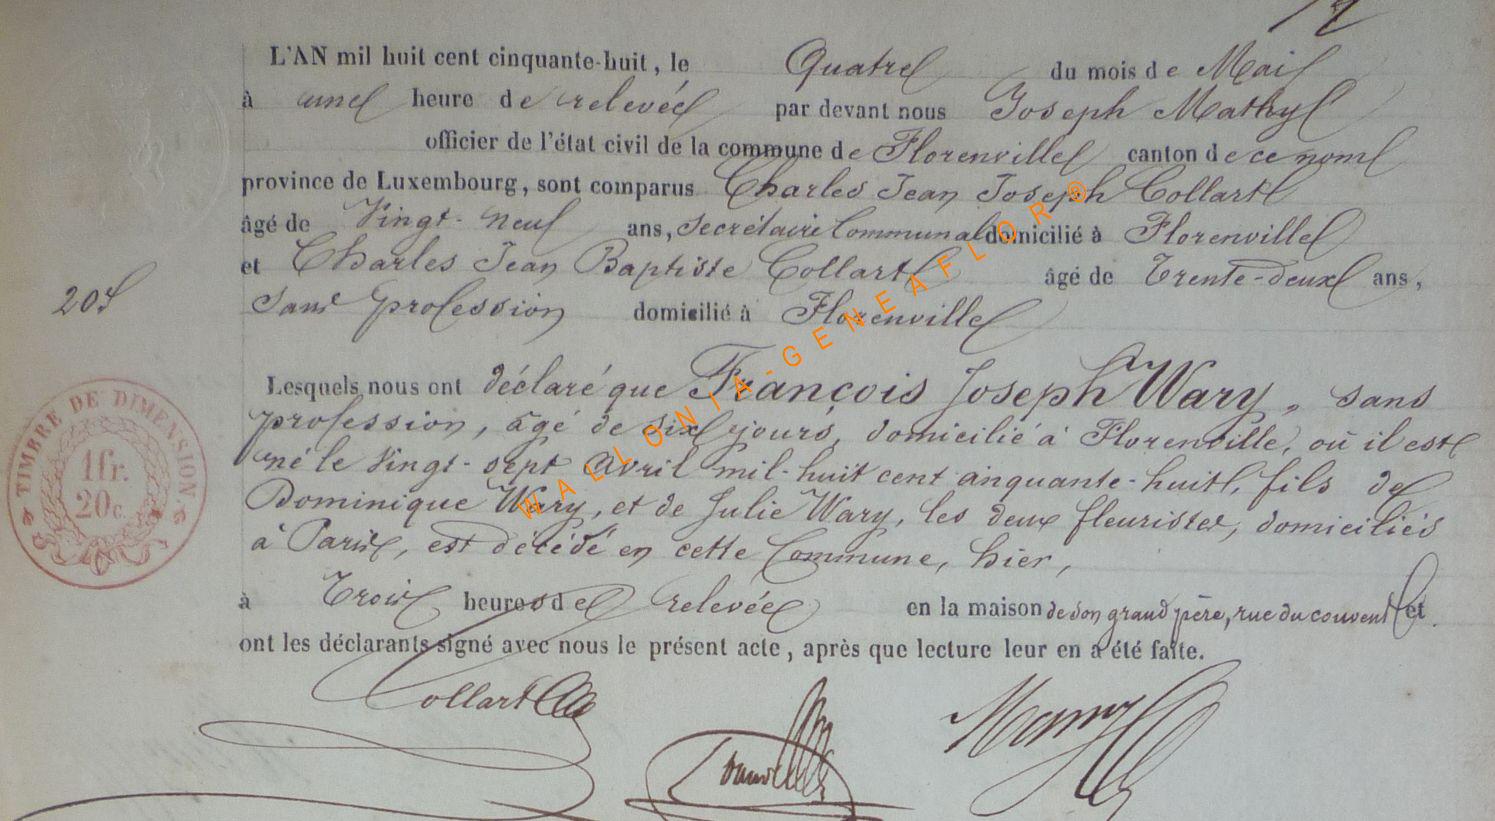 L'AN mil huit cent cinquante-huit, le Quatre du mois de Mai
à une heure de relevée par devant nous Joseph Mathy
officier de l'état civil de la commune de Florenville canton de ce nom
province de Luxembourg, sont comparus Charles Jean Joseph Collart
âgé de Vingt-neuf ans, secrétaire Communal domicilié à Florenville
et Charles Jean Baptiste Collart âgé de Trente-deux ans,
sans profession domicilié à Florenville
Lesquels nous ont déclaré que François Joseph Wary, sans
profession, âgé de six jours, domicilié à Florenville, où il est
né le Vingt-sept Avril mil-huit cent cinquante-huit, fils de
Dominique Wary, et de Julie Wary, les deux fleuristes, domiciliés
à Paris, est décédé en cette Commune, hier,
à Trois heures de relevée en la maison de son grand père, rue du couvent et
ont les déclarants signé avec nous le présent acte, après que lecture leur en a été faite.
Collart
TIMBRE DE DIMENSION.
1 fr.
20 c.
WALLONIA-GENEAFLOR®